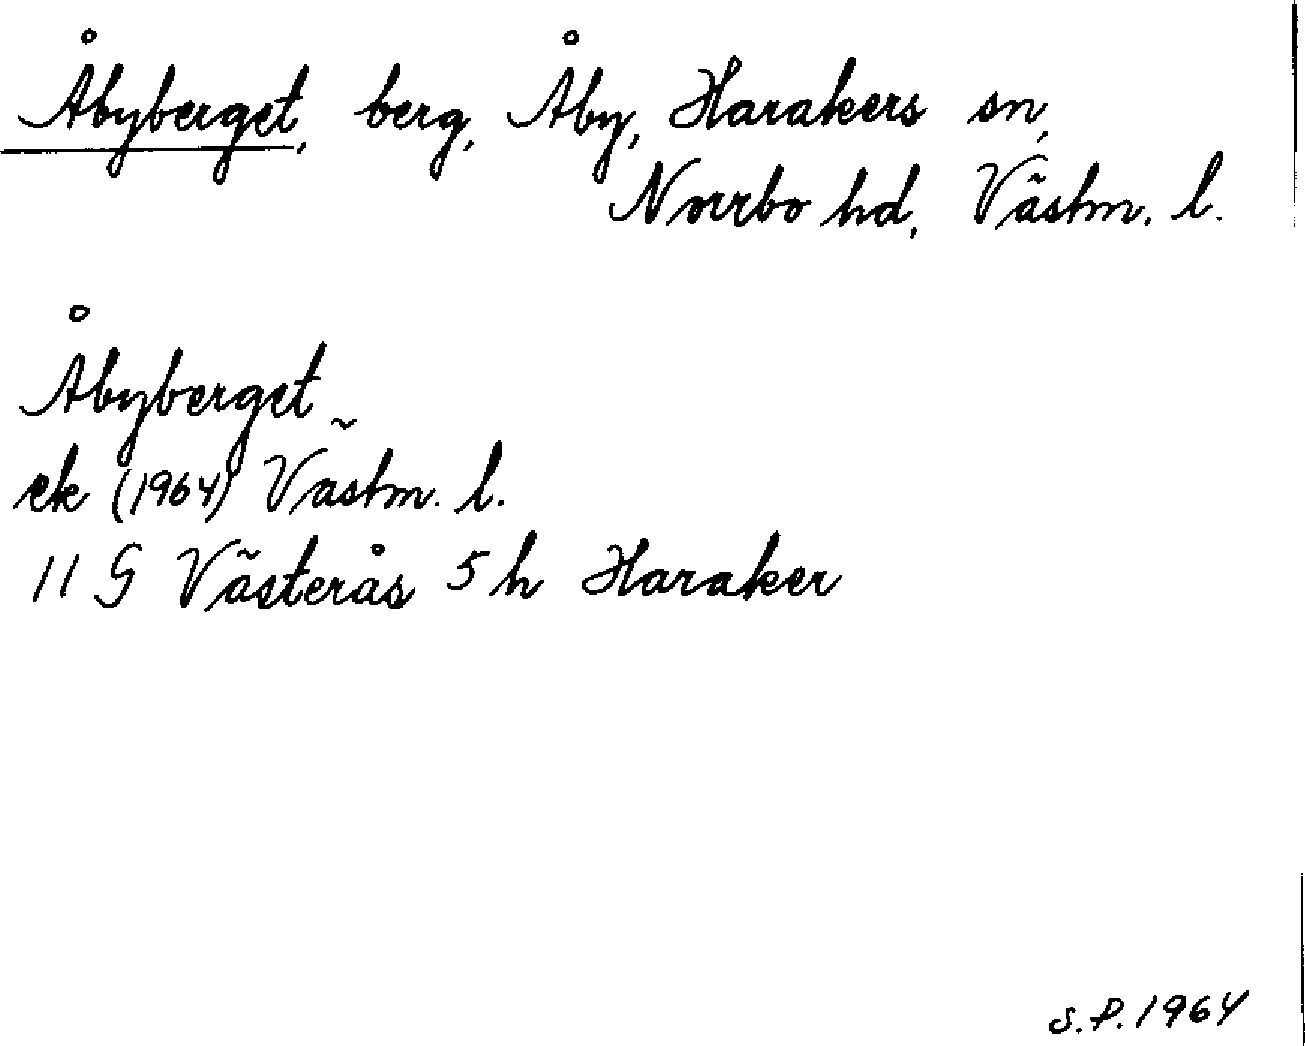 Åbyberget, berg, Åby, Harakers sn,
Norrbo hd, Västm. l.
Åbyberget
ek (1964) Västm. l.
11 G Västerås 5 h Haraker
S.P. 1964